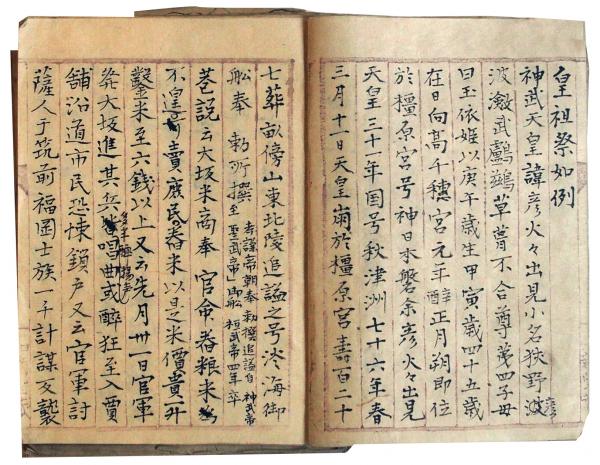 皇祖祭如例
神武天皇諱彦火々出見小名狭野彦
波瀲武鸕鷀草葺不合尊第四子母
曰玉依姫以庚午歳生甲寅歳四十五歳
在日向高千穂宮元年酉正月朔即位
於橿原宮号神日本磐余彦火々出見
天皇三十一年国号秋津洲七十六年春
三月十一日天皇崩於橿原宮壽百二十
七葬畝傍山東北陵追謚之号淡海御
舩奉 勅所撰
帝朝奉勅撰追謚自神武帝
至聖武帝 御舩 桓武帝四年卒
巷説云大坂米商奉 官命舂粮米
不遑賣庶民舂米以是米價貴一升
鑿米至六錢以上又云先月卅一日官軍
発大坂進其兵唱曲或醉狂至入賈
舗沿道市民恐悚鎖戸又云官軍討
薩人于筑前福岡士族一千計謀反襲